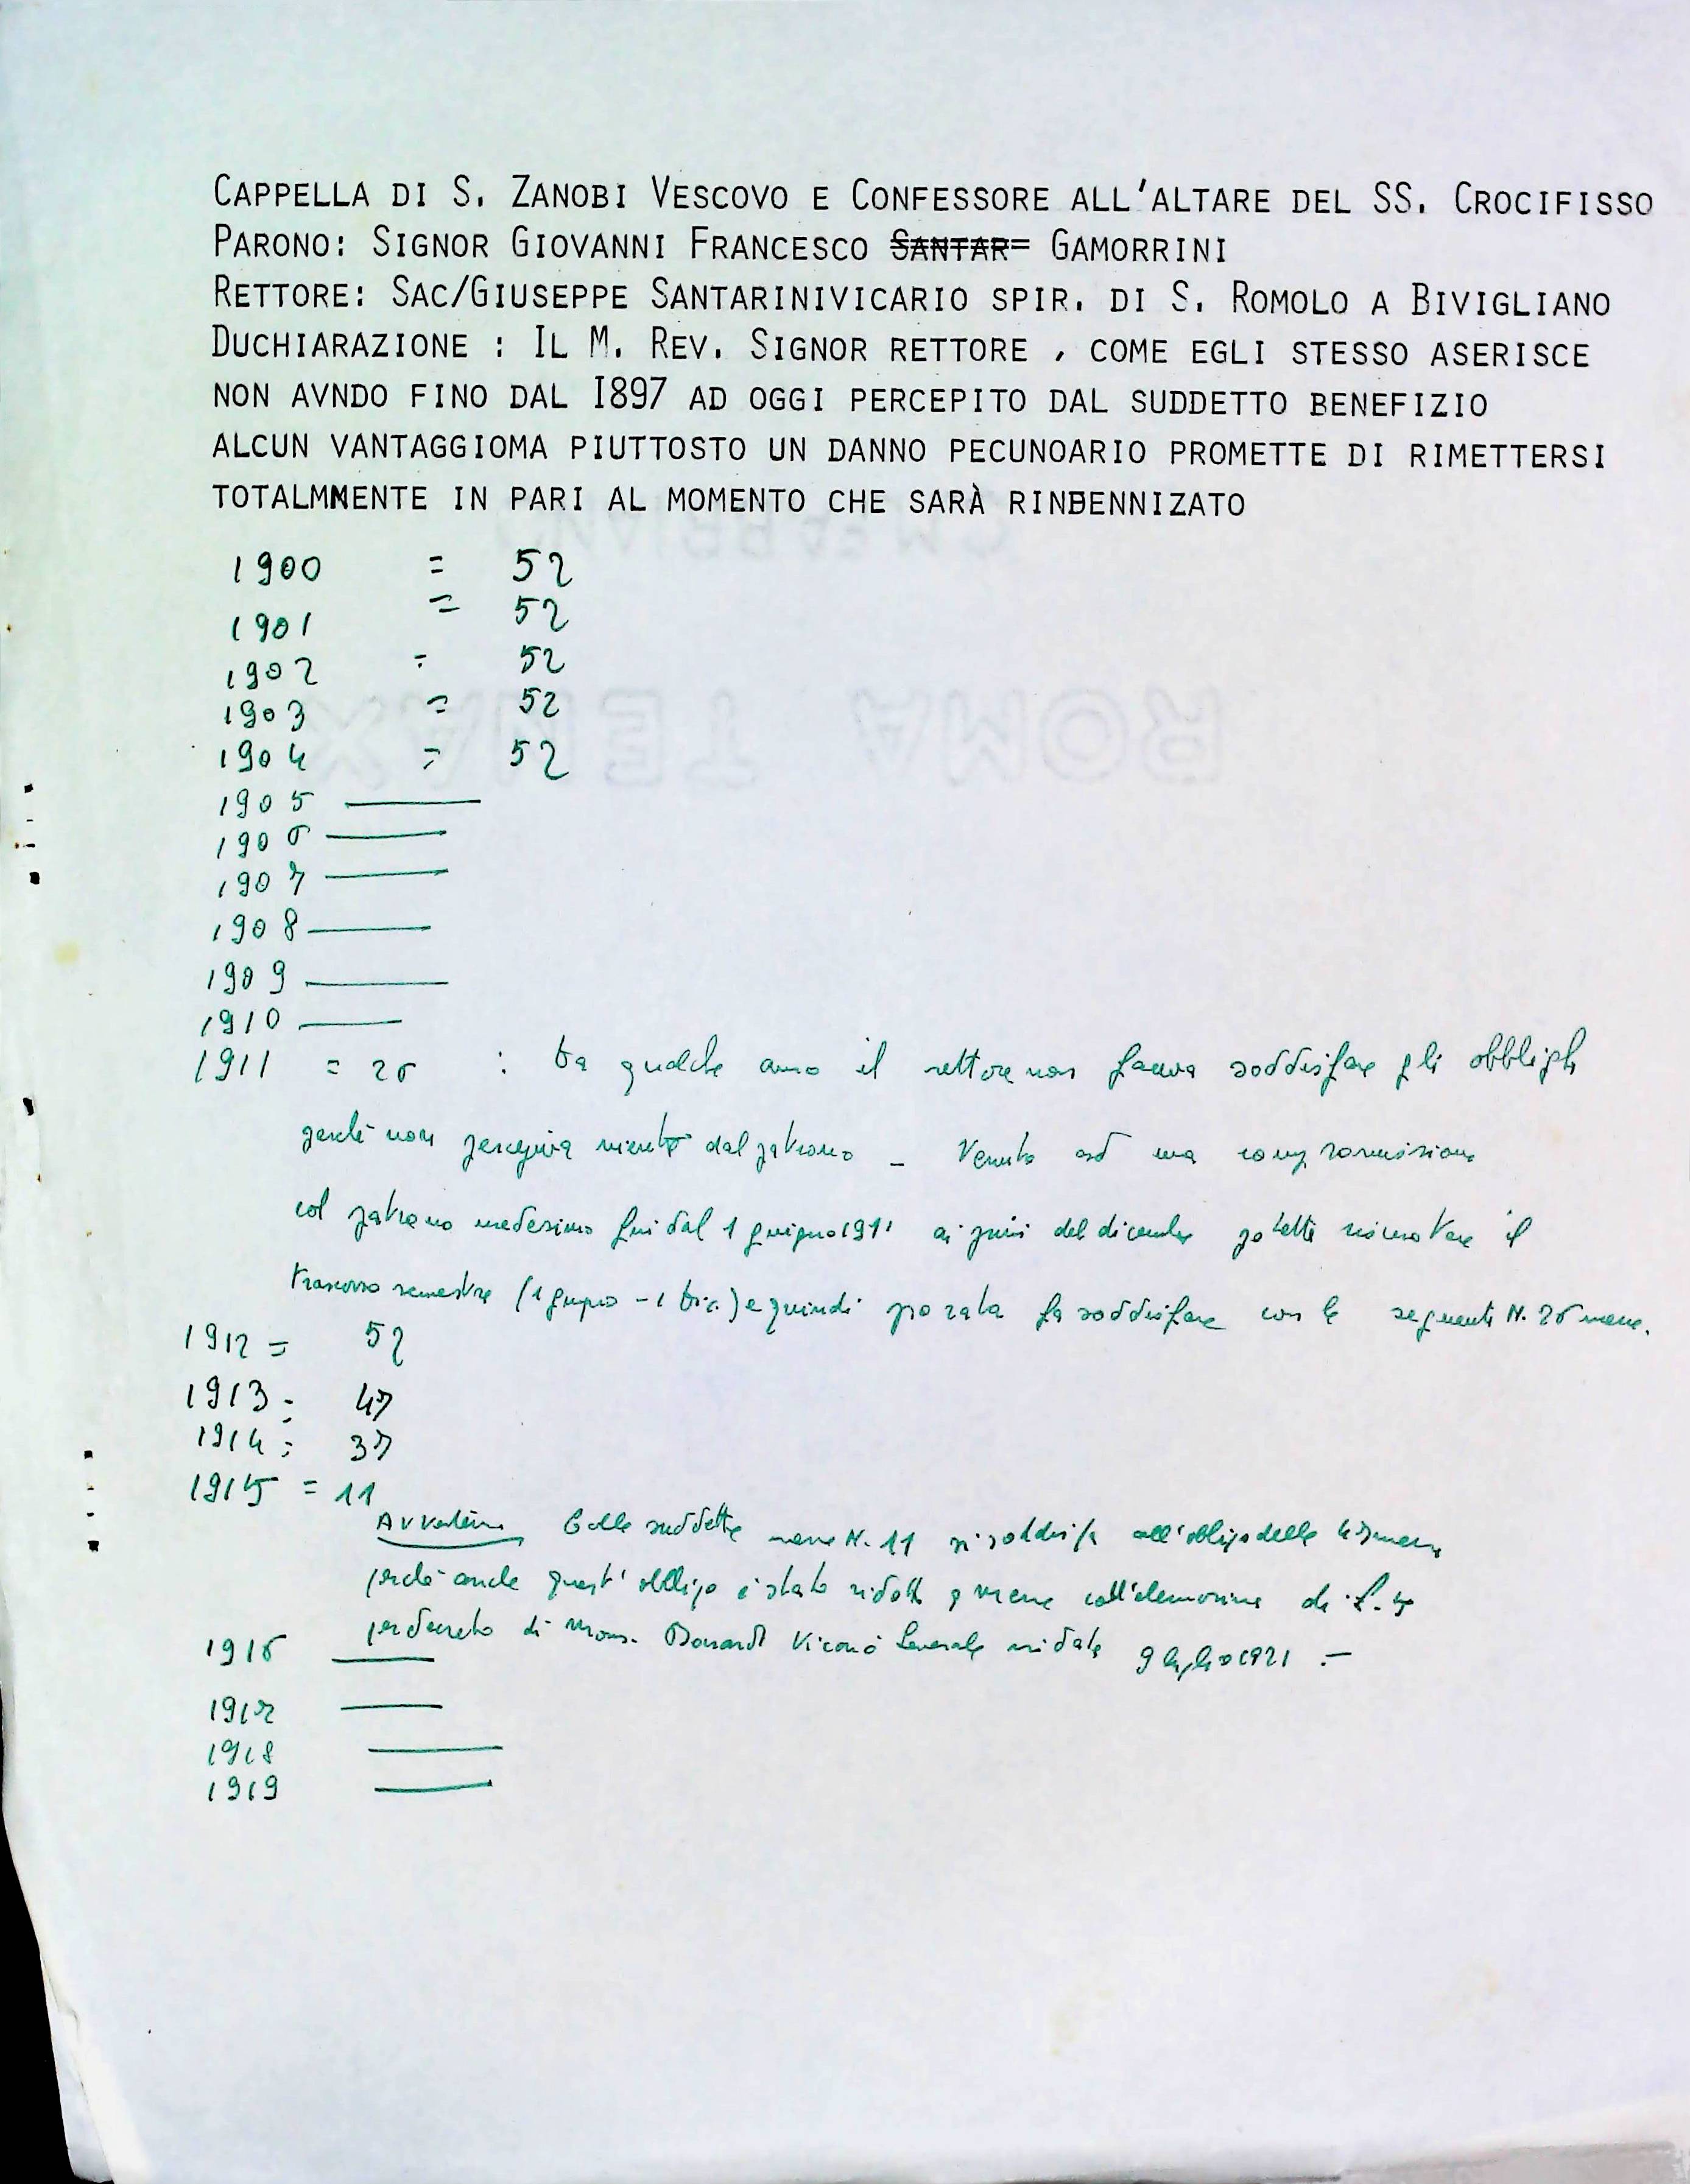 CAPPELLA DI S. ZANOBI VESCOVO E CONFESSORE ALL'ALTARE DEL SS. CROCIFISSO
PARONO: SIGNOR GIOVANNI FRANCESCO SANTAR= GAMORRINI
RETTORE: SAC/GIUSEPPE SANTARINIVICARIO SPIR. DI S. ROMOLO A BIVIGLIANO
DUCHIARAZIONE : IL M. REV. SIGNOR RETTORE , COME EGLI STESSO ASERISCE
NON AVNDO FINO DAL I897 AD OGGI PERCEPITO DAL SUDDETTO BENEFIZIO
ALCUN VANTAGGIOMA PIUTTOSTO UN DANNO PECUNOARIO PROMETTE DI RIMETTERSI
TOTALMMENTE IN PARI AL MOMENTO CHE SARÀ RINBENNIZATO
1900 = 52
1901 = 52
1902 = 52
1903 = 52
1904 = 52
1905 ———
1906 ———
1907 ———
1908 ———
1909 ———
1910 ———
1911 = 26 : Da qualche anno il rettore non faceva soddisfare gli obblighi
perché non percepiva niente dal patrono – Venuto ad una compromissione
col patrono medesimo fin dal 1 giugno 1911 ai primi del dicembre potette riscuotere il
trascorso semestre (1 giugno – 1 dic.) e quindi pro rata fa soddisfare con le seguenti N. 26 messe.
1912 = 52
1913 = 47
1914 = 37
1915 = 11
Colle suddette messe N. 11 si soddisfa all'obbligo delle messe
perché anche quest'obbligo è stato ridotto messe coll'elemosina di £. 5
per decreto di Mons. Vicario Generale in data 9 luglio 1921 . –
1916 ———
1917 ———
1918 ———
1919 ———